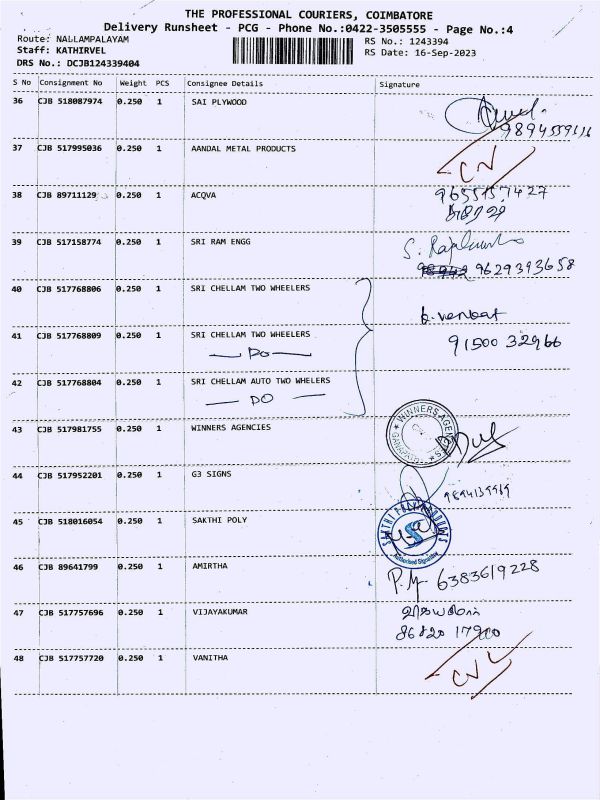 THE PROFESSIONAL COURIERS, COIMBATORE
Delivery Runsheet - PCG - Phone No.:0422-3505555 - Page No.:4
Route: NALLAMPALAYAM
RS No.: 1243394
Staff: KATHIRVEL
RS Date: 16-Sep-2023
DRS No.: DCJB124339404
S No Consignment No Weight PCS Consignee Details Signature
36 CJB 518087974 0.250 1 SAI PLYWOOD
37 CJB 517995036 0.250 1 AANDAL METAL PRODUCTS
CN
38 CJB 89711129 0.250 1 ACQVA
39 CJB 517158774 0.250 1 SRI RAM ENGG
9629393658
40 CJB 517768806 0.250 1 SRI CHELLAM TWO WHEELERS
k. venkat
41 CJB 517768809 0.250 1 SRI CHELLAM TWO WHEELERS
91500 32966
— DO —
42 CJB 517768804 0.250 1 SRI CHELLAM AUTO TWO WHELERS
— DO —
43 CJB 517981755 0.250 1 WINNERS AGENCIES
44 CJB 517952201 0.250 1 G3 SIGNS
45 CJB 518016054 0.250 1 SAKTHI POLY
46 CJB 89641799 0.250 1 AMIRTHA
P.M 6383619228
47 CJB 517757696 0.250 1 VIJAYAKUMAR
48 CJB 517757720 0.250 1 VANITHA